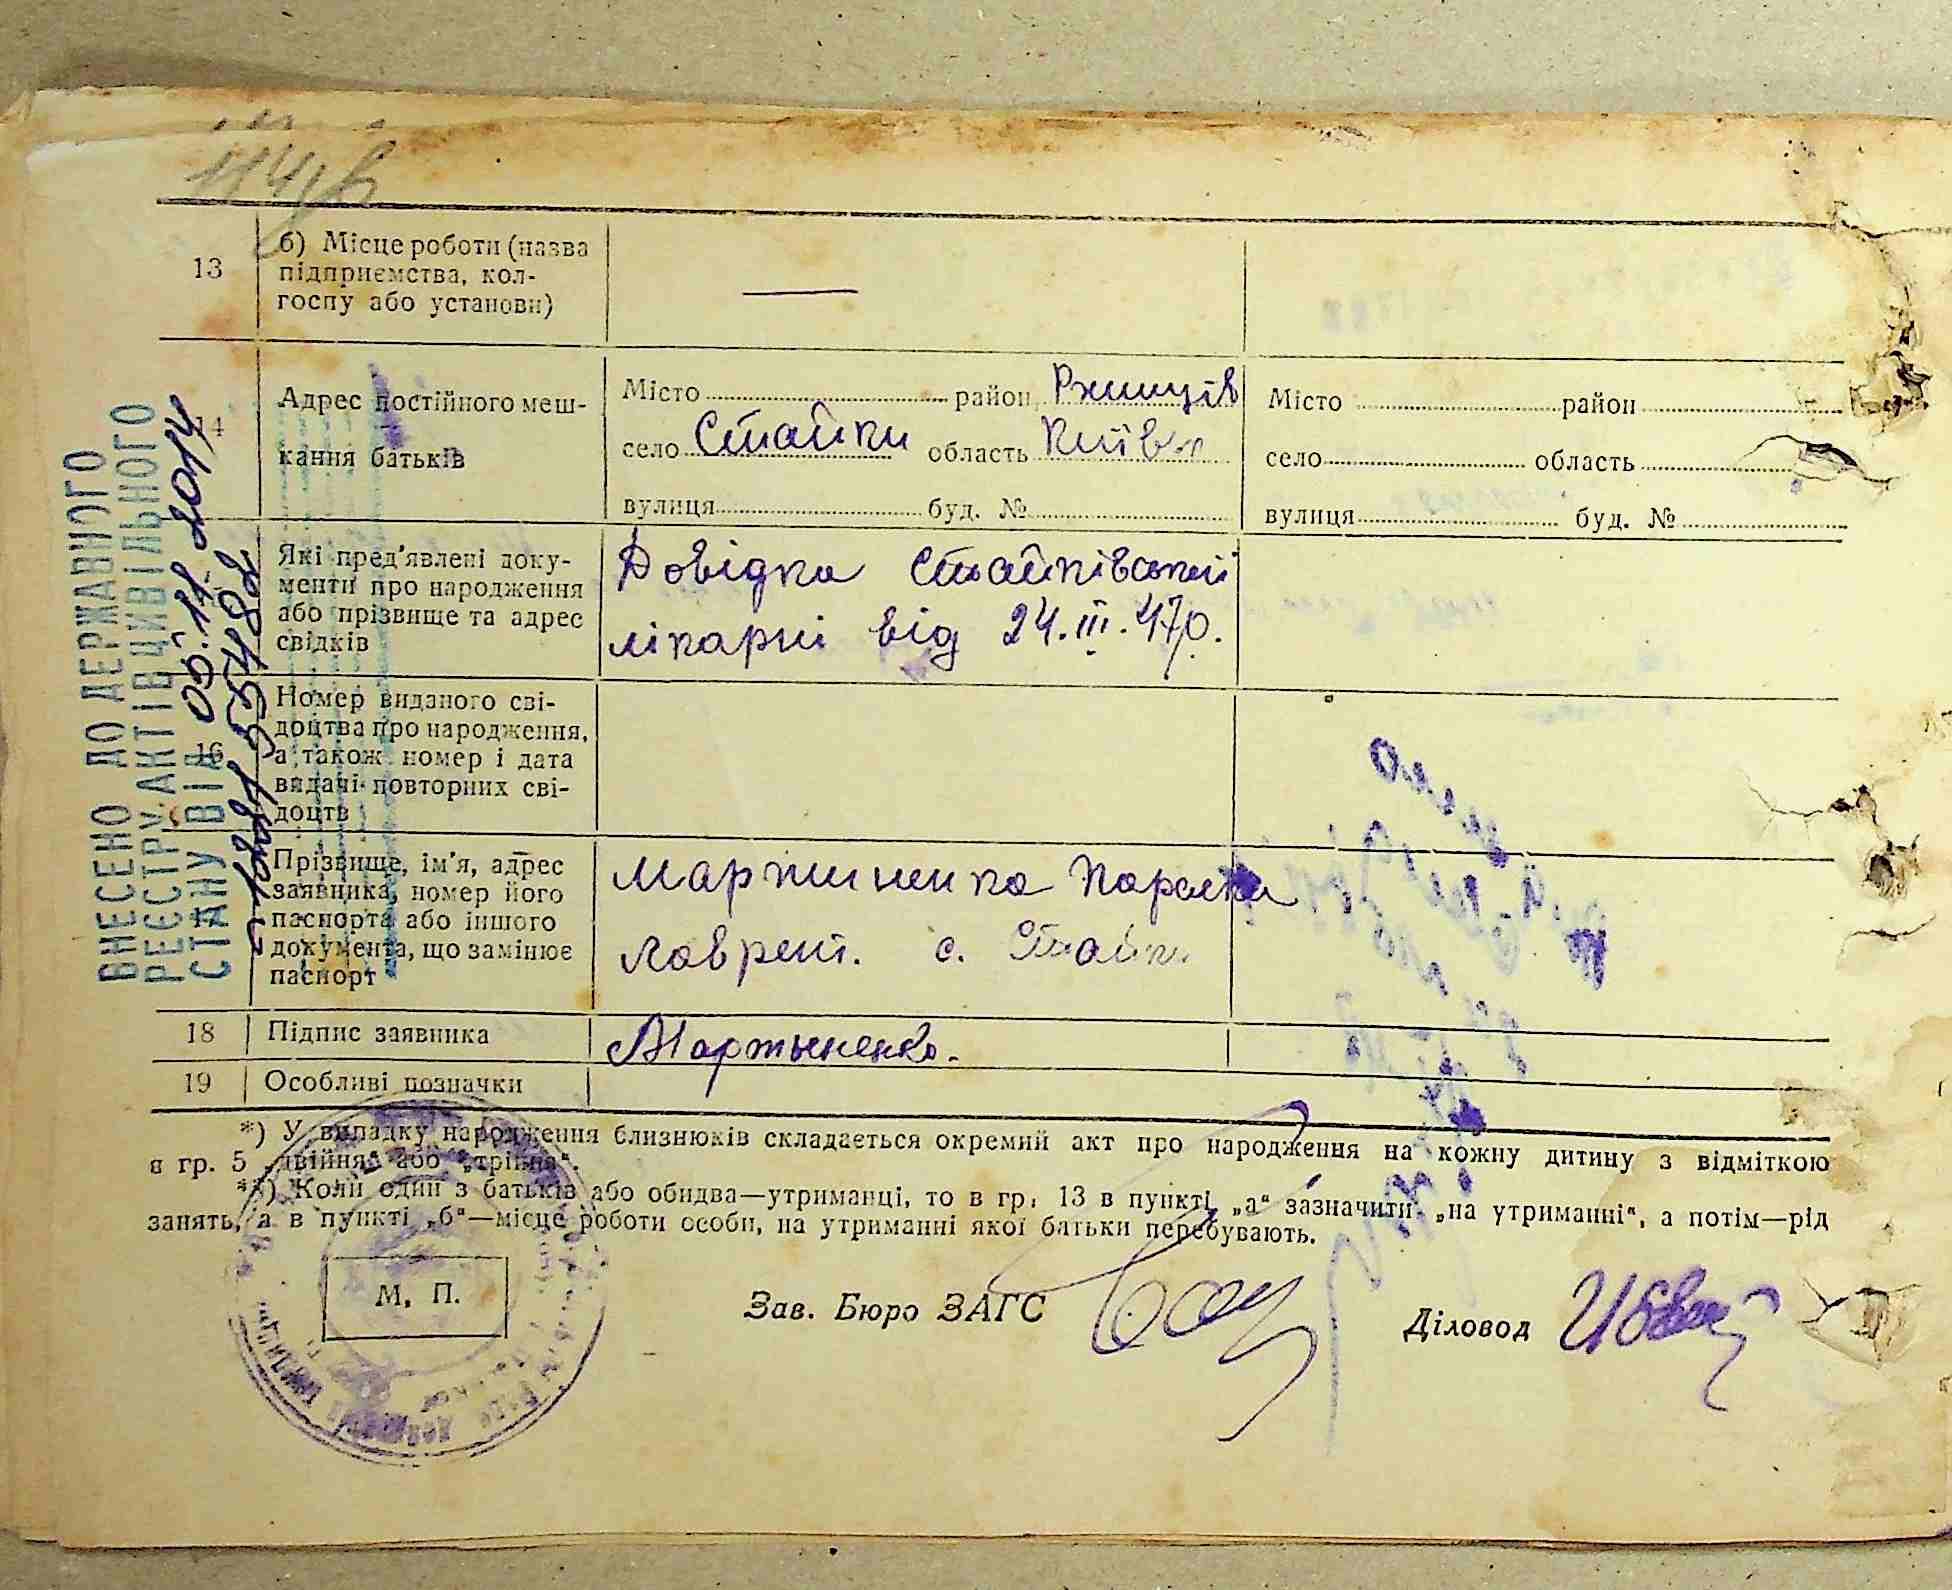 114 зв
13
б) Місце роботи (назва
підприємства, кол-
госпу або установи)
—
14
Адрес постійного меш-
кання батьків
Місто район Ржищів
село Стайки область Київ
вулиця буд. №
Місто район
село область
вулиця буд. №
Які пред'явлені доку-
менти про народження
або прізвище та адрес
свідків
Довідка Стайківської
лікарні від 24.III.47р.
16
Номер виданого сві-
доцтва про народження,
а також номер і дата
видачі повторних сві-
доцтв
17
Прізвище, ім'я, адрес
заявника, номер його
паспорта або іншого
документа, що замінює
паспорт
Мартиненко Параска
Лаврент. с. Стайки
18
Підпис заявника
Мартыненко.
19
Особливі позначки
ВНЕСЕНО ДО ДЕРЖАВНОГО
РЕЄСТРУ АКТІВ ЦИВІЛЬНОГО
СТАНУ ВІД 05.11.2014
*) У випадку народження близнюків складається окремий акт про народження на кожну дитину з відміткою
в гр. 5 „двійня“ або „трійня“.
**) Коли один з батьків або обидва—утриманці, то в гр. 13 в пункті „а“ зазначити „на утриманні“, а потім—рід
занять, а в пункті „б“—місце роботи особи, на утриманні якої батьки перебувають.
М. П.
Зав. Бюро ЗАГС
Діловод